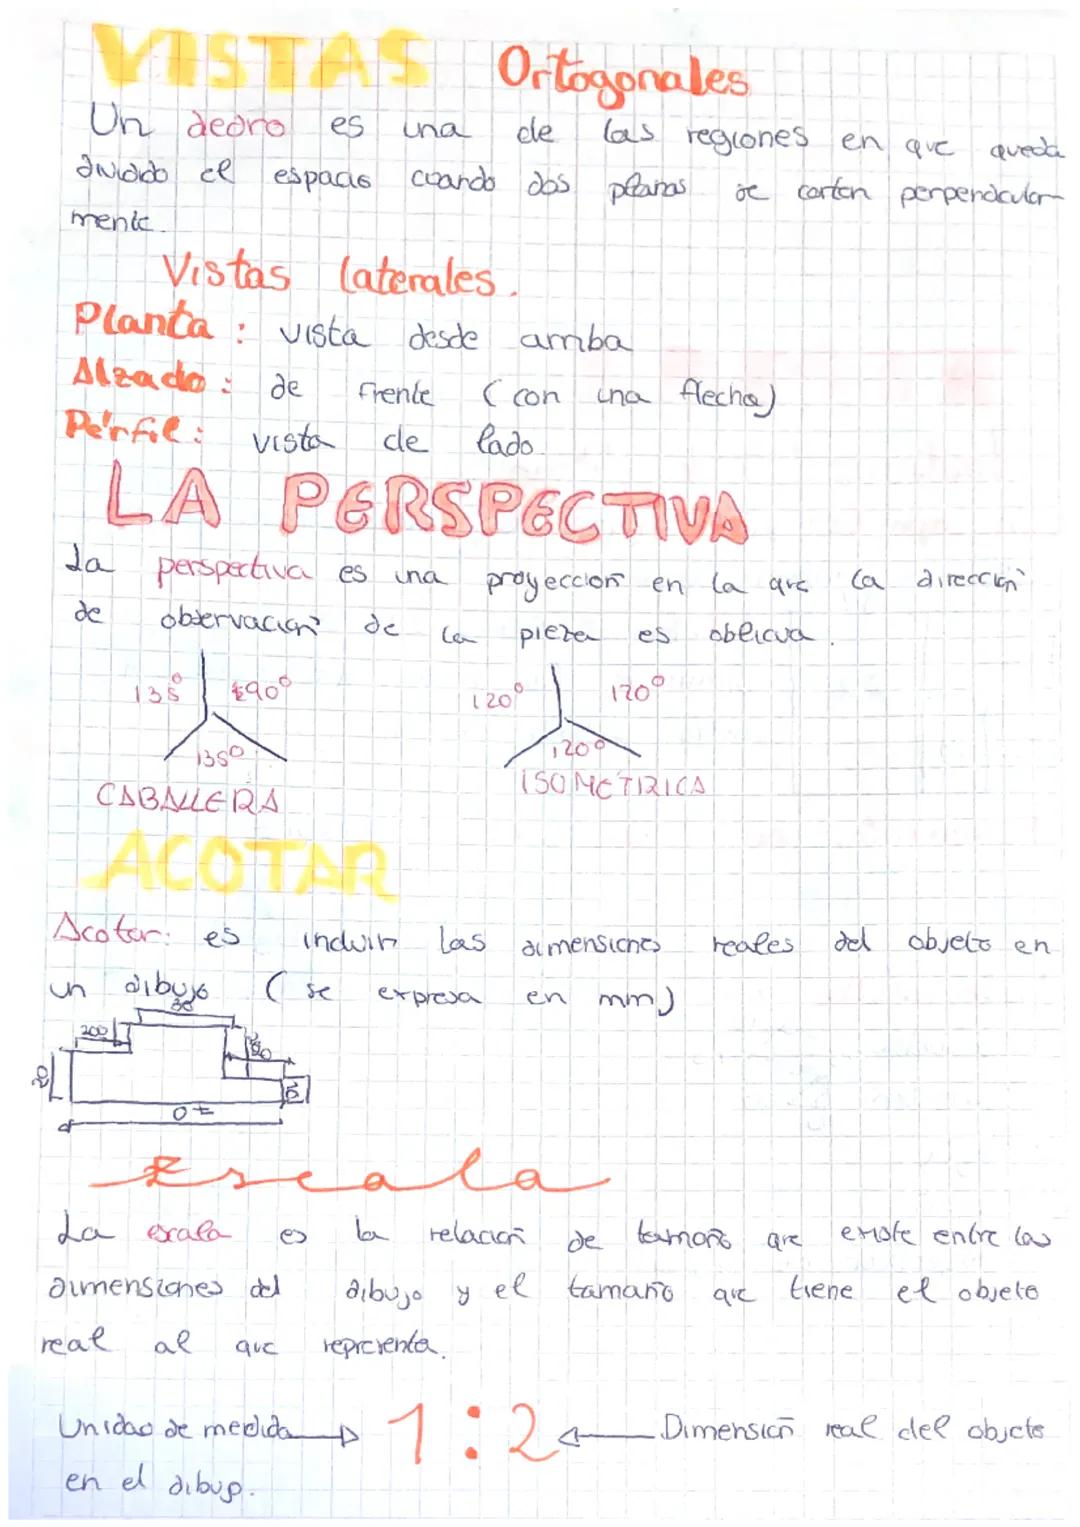 VISTAS Ortogonales
Un dedro es una de las regiones en que queda
dividido el espacio cuando dos planos se cortan perpendicular-
mente.
Vistas laterales.
Planta : vista desde arriba
Alzado : de frente (con una flecha)
Perfil : vista de lado.
LA PERSPECTIVA
La perspectiva es una proyección en la que la dirección
de observación de la pieza es oblicua.
135° 90° 120° 120°
135° 120°
CABALLERA ISOMETRICA
ACOTAR
Acotar: es incluir las dimensiones reales del objeto en
un dibujo (se expresa en mm)
30
200
20
10
70
Escala
La escala es la relación de tamaño que existe entre las
dimensiones del dibujo y el tamaño que tiene el objeto
real al que representa.
Unidad de medida 1:2 Dimensión real del objeto
en el dibujo.